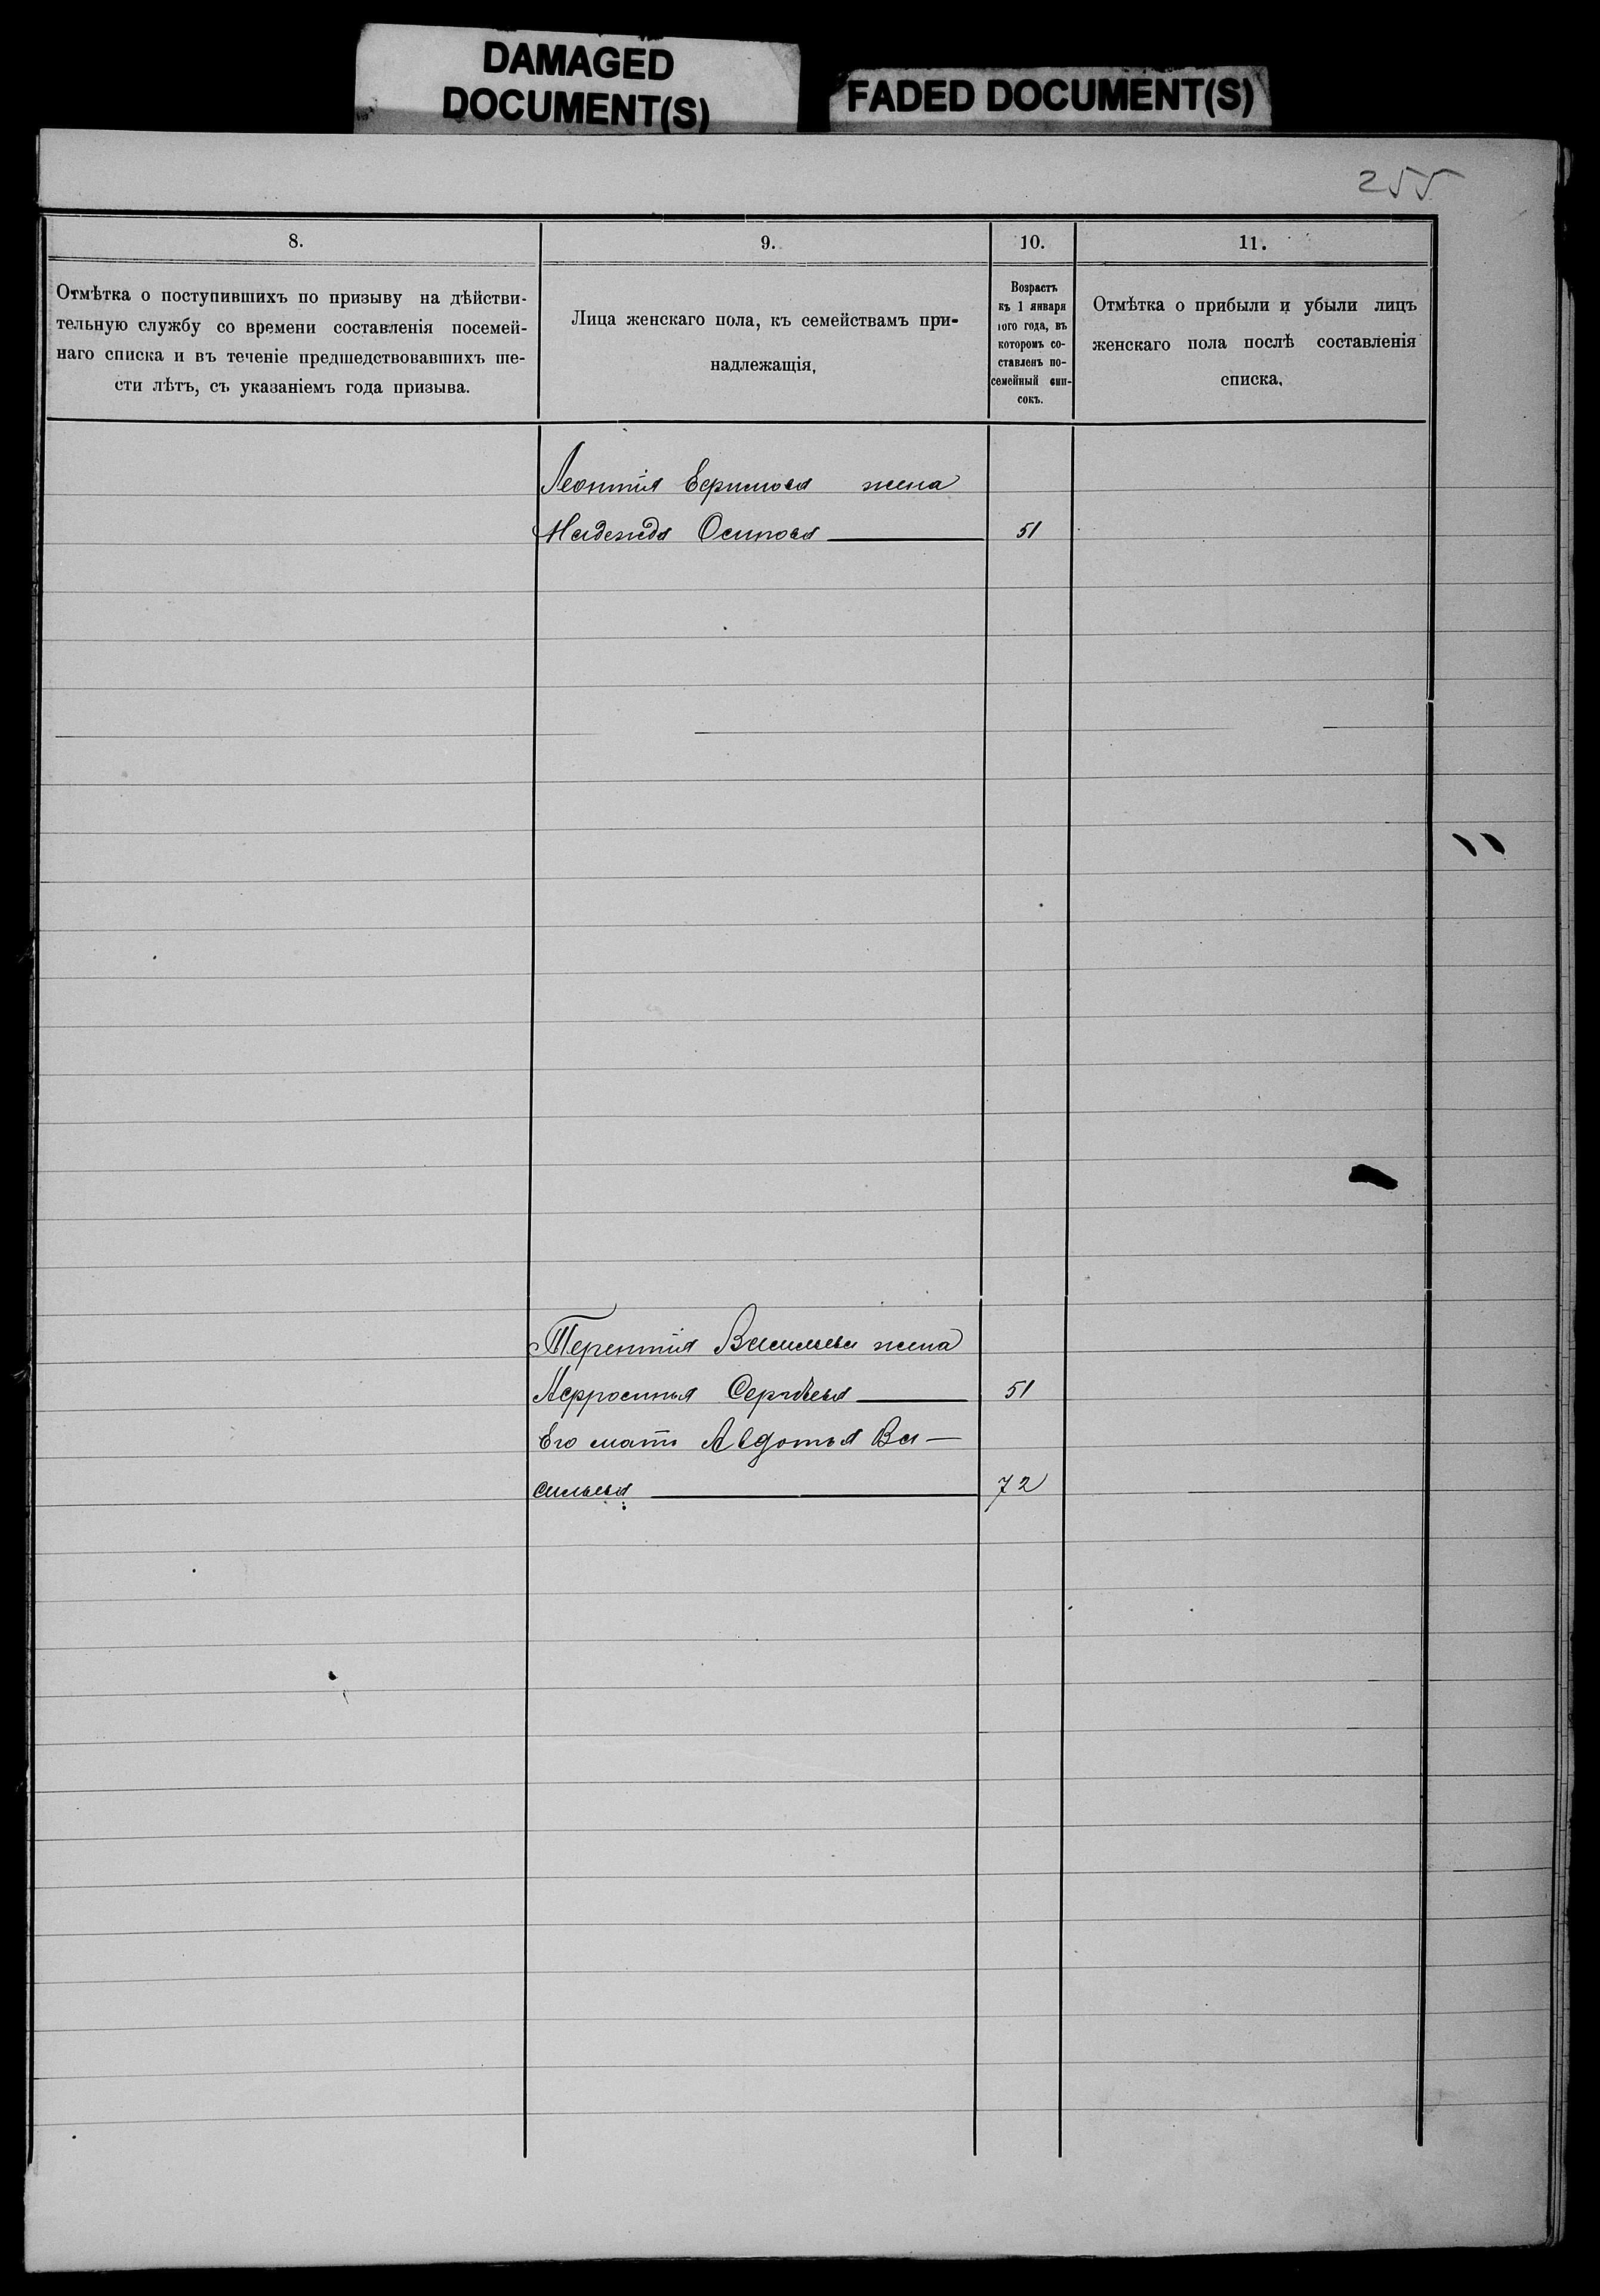 DAMAGED
DOCUMENT(S)
FADED DOCUMENT(S)
255
8.
9.
10.
11.
Отмѣтка о поступившихъ по призыву на дѣйстви-
тельную службу со времени составленія посемей-
наго списка и въ теченіе предшедствовавшихъ ше-
сти лѣтъ, съ указаніемъ года призыва.
Лица женскаго пола, къ семействамъ при-
надлежащія,
Возрастъ
къ 1 января
того года, въ
которомъ со-
ставленъ по-
семейный спи-
сокъ.
Отмѣтка о прибыли и убыли лицъ
женскаго пола послѣ составленія
списка,
Леонтія Ефимова жена
Надежда Осипова 51
Терентія Васильева жена
Афросинья Сергѣева 51
Его мать Авдотья Ва-
сильева 72